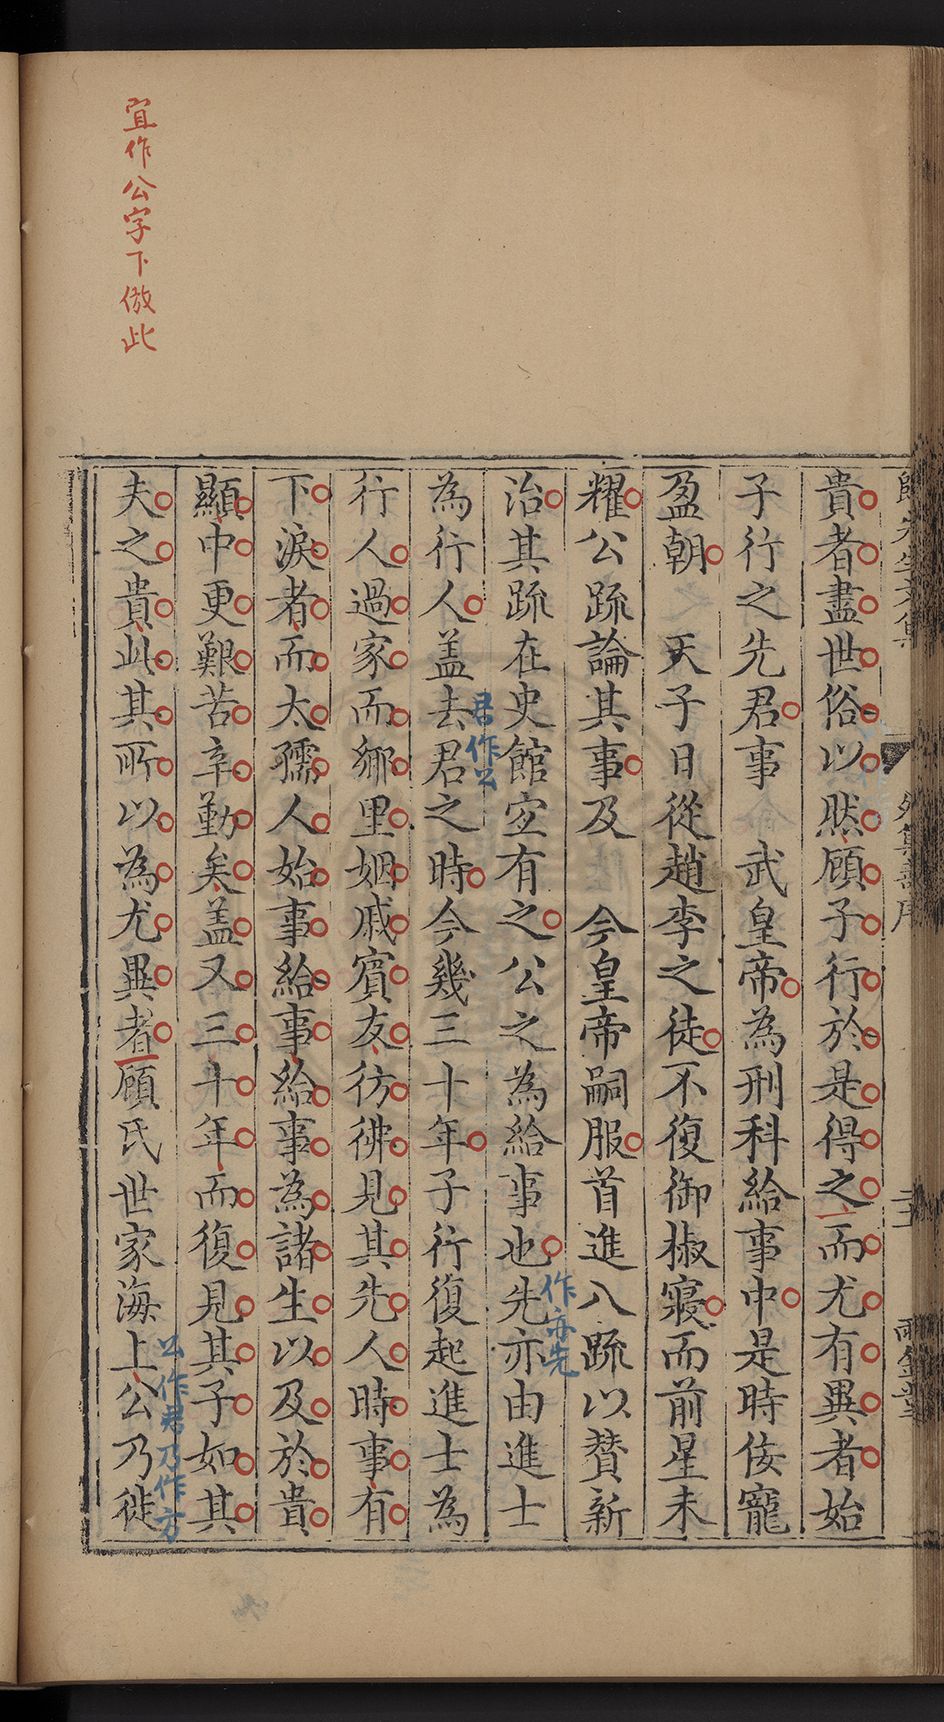 貴者盡世俗以然顧子行於是得之而尤有異者始
子行之先君事 武皇帝為刑科給事中是時佞寵
盈朝 天子日從趙李之徒不復御椒寢而前星未
耀公䟽論其事及 今皇帝嗣服首進八䟽以贊新
治其䟽在史館宜有之公之為給事也先亦由進士
作亦先
為行人盖去君之時今幾三十年子行復起進士為
君作公
行人過家而鄉里姻戚賓友彷彿見其先人時事有
下淚者而太孺人始事給事給事為諸生以及於貴
顯中更艱苦辛勤矣盖又三十年而復見其子如其
夫之貴此其所以為尤異者顧氏世家海上公乃徙
公作君乃作方
宜作公字下倣此